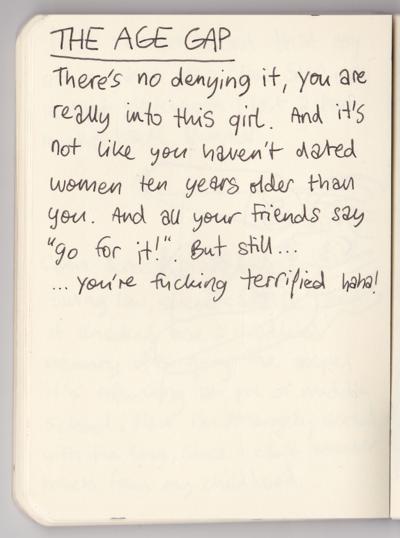 THE AGE GAP
There's no denying it, you are
really into this girl. And it's
not like you haven't dated
women ten years older than
you. And all your friends say
"go for it!". But still...
...you're fucking terrified haha!